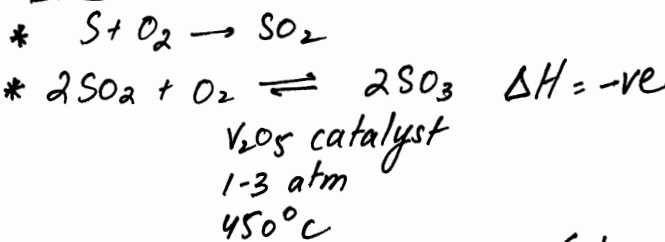 * S + O₂ → SO₂
* 2SO₂ + O₂ ⇌ 2SO₃ ΔH = -ve
V₂O₅ catalyst
1-3 atm
450°C